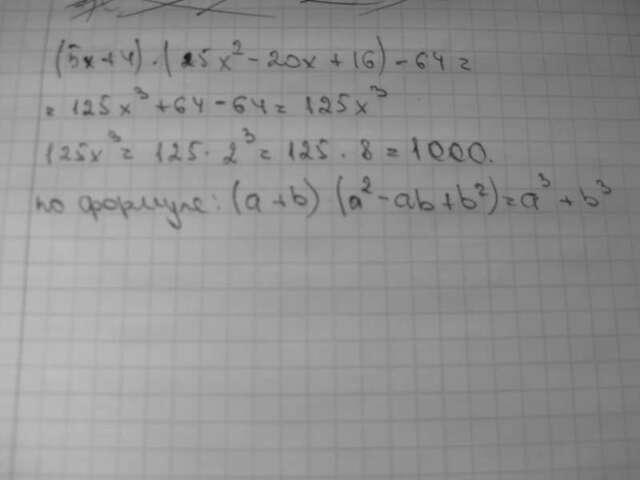 (5x+4)·(25x²-20x+16)-64=
= 125x³+64-64= 125x³
125x³= 125·2³= 125·8=1000.
по формуле: (a+b)(a²-ab+b²)=a³+b³